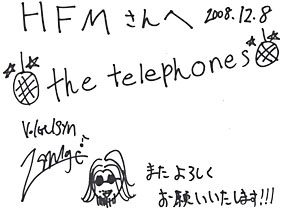 HFMさんへ 2008.12.8
the telephones
またよろしく
お願いいたします!!!